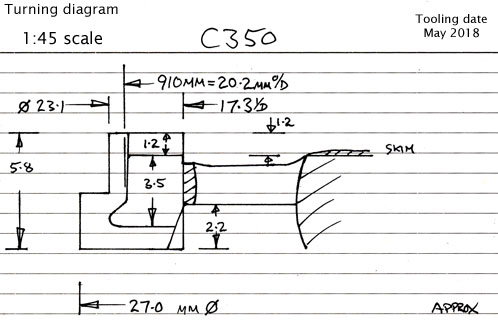 Turning diagram
1:45 scale
C350
Tooling date
May 2018
910MM = 20.2MM O/D
Ø 23.1
17.3 I/D
1.2
1.2
SKIM
5.8
3.5
2.2
27.0 MM Ø
APPROX